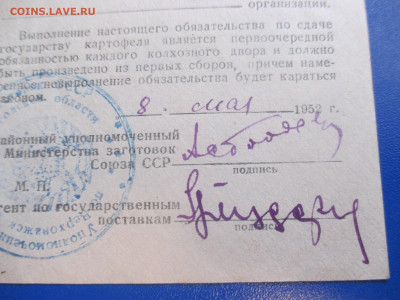 COINS.LAVE.RU
организации.
Выполнение настоящего обязательства по сдаче
государству картофеля является первоочередной
обязанностью каждого колхозного двора и должно
быть произведено из первых сборов, причем наме-
ренное невыполнение обязательства будет караться
законом.
8. мая 1952 г.
районный уполномоченный
Министерства заготовок
Союза ССР
подпись
М. П.
Агент по государственным
поставкам
подпись
области